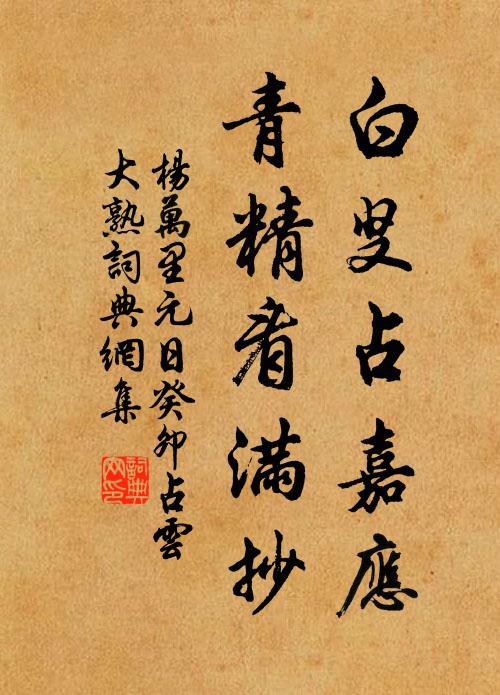 白叟占嘉應
青精看滿抄
楊萬里元日癸卯占雲
大熟詞典網集
詞典